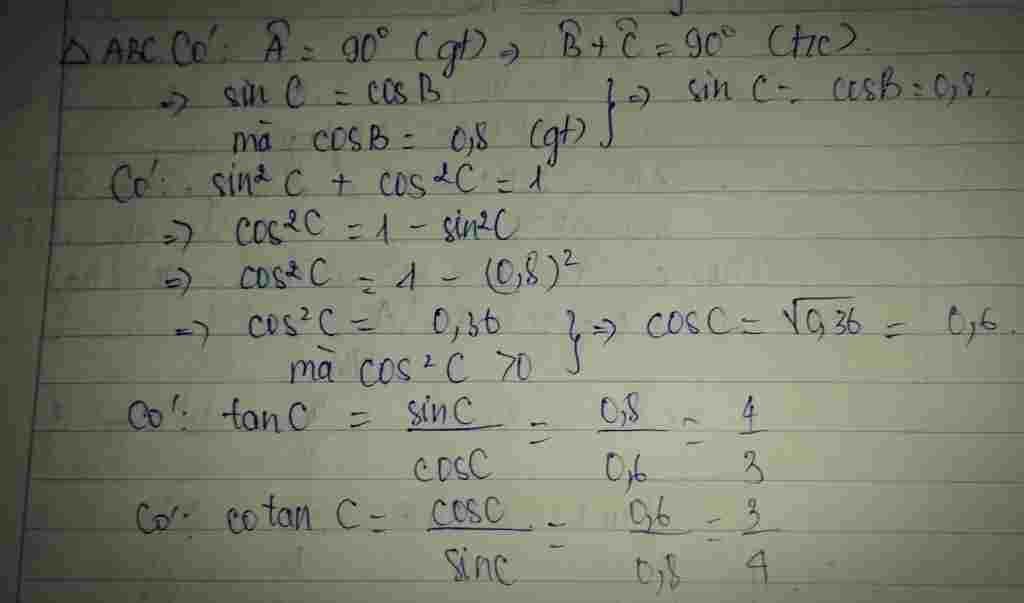 △ABC Có: Â = 90° (gt) ⇒ B̂ + Ĉ = 90° (t/c).
⇒ sin C = cosB } ⇒ sin C = cosB = 0,8.
mà cosB = 0,8 (gt)
Có: sin² C + cos²C = 1
⇒ cos²C = 1 - sin²C
⇒ cos²C = 1 - (0,8)²
⇒ cos²C = 0,36 } ⇒ cosC = √0,36 = 0,6.
mà cos²C >0
Có: tanC = sinC/cosC = 0,8/0,6 = 4/3
Có: cotan C = cosC/sinC = 0,6/0,8 = 3/4